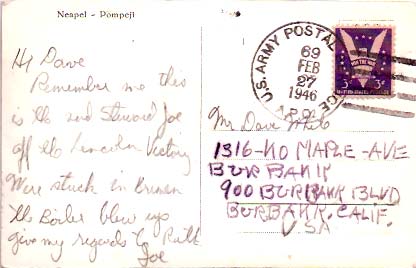 Neapel - Pompeji
Hy Dave
Remember me this
is the 2nd Steward Joe
off the Lincoln Victory
Were stuck in Bremen
the Boiler blew up
give my regards to Ruth
Joe
U.S. ARMY POSTAL
69
FEB
27
1946
A.P.O.
WIN THE WAR
3¢
Mr Dave White
1316-NO MAPLE-AVE
BURBANK
900 BURBANK BLVD
BURBANK. CALIF.
USA